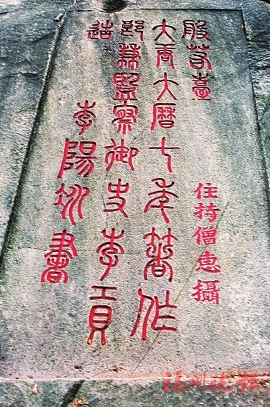 般若臺
住持僧惠攝
大唐大曆七年著作
郎兼監察御史李貢
造 李陽冰書
福州晚報